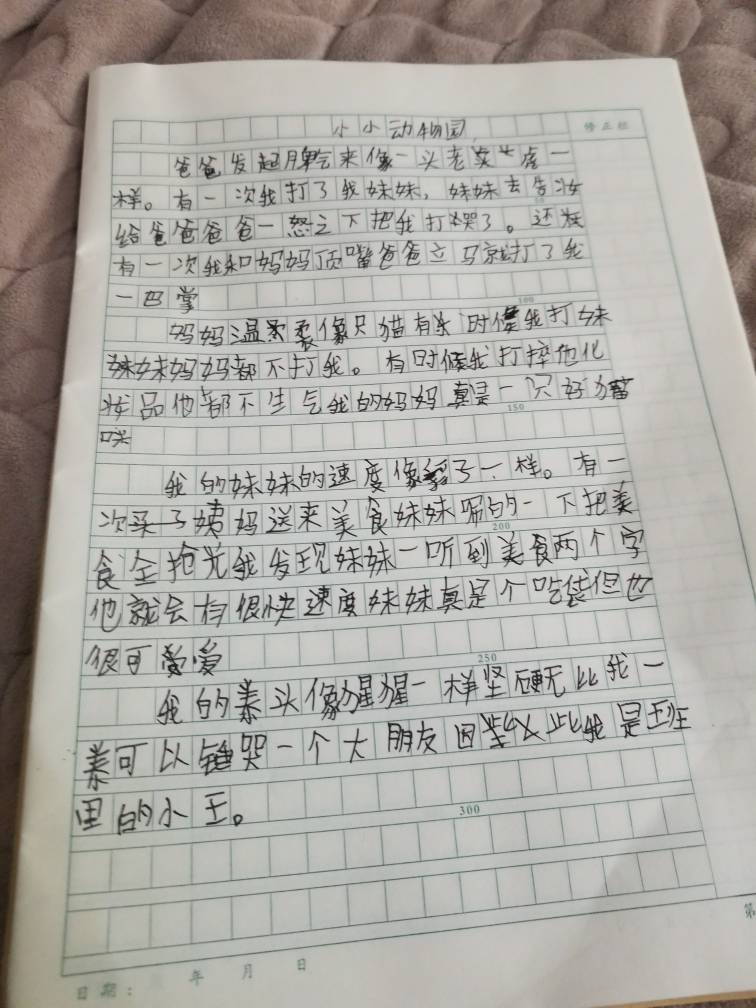 小小动物园
修正栏
爸爸发起脾气来像一头老虎一
样。有一次我打了我妹妹，妹妹去告状
给爸爸爸爸一怒之下把我打哭了。还
有一次我和妈妈顶嘴爸爸立马就打了我
一巴掌
100
妈妈温柔像只猫有时候我打妹
妹妹妈妈都不打我。有时候我打摔他化
妆品他都不生气我的妈妈真是一只好猫
咪
150
我的妹妹的速度像豹子一样。有一
次姨妈送来美食妹妹的一下把美
200
食全抢光我发现妹妹一听到美食两个字
他就会有很快速度妹妹真是个吃货但也
很可爱
250
我的拳头像猩猩一样坚硬无比我一
拳可以锤哭一个大朋友因此我是班
里的小王。
300
第
日期： 年 月 日